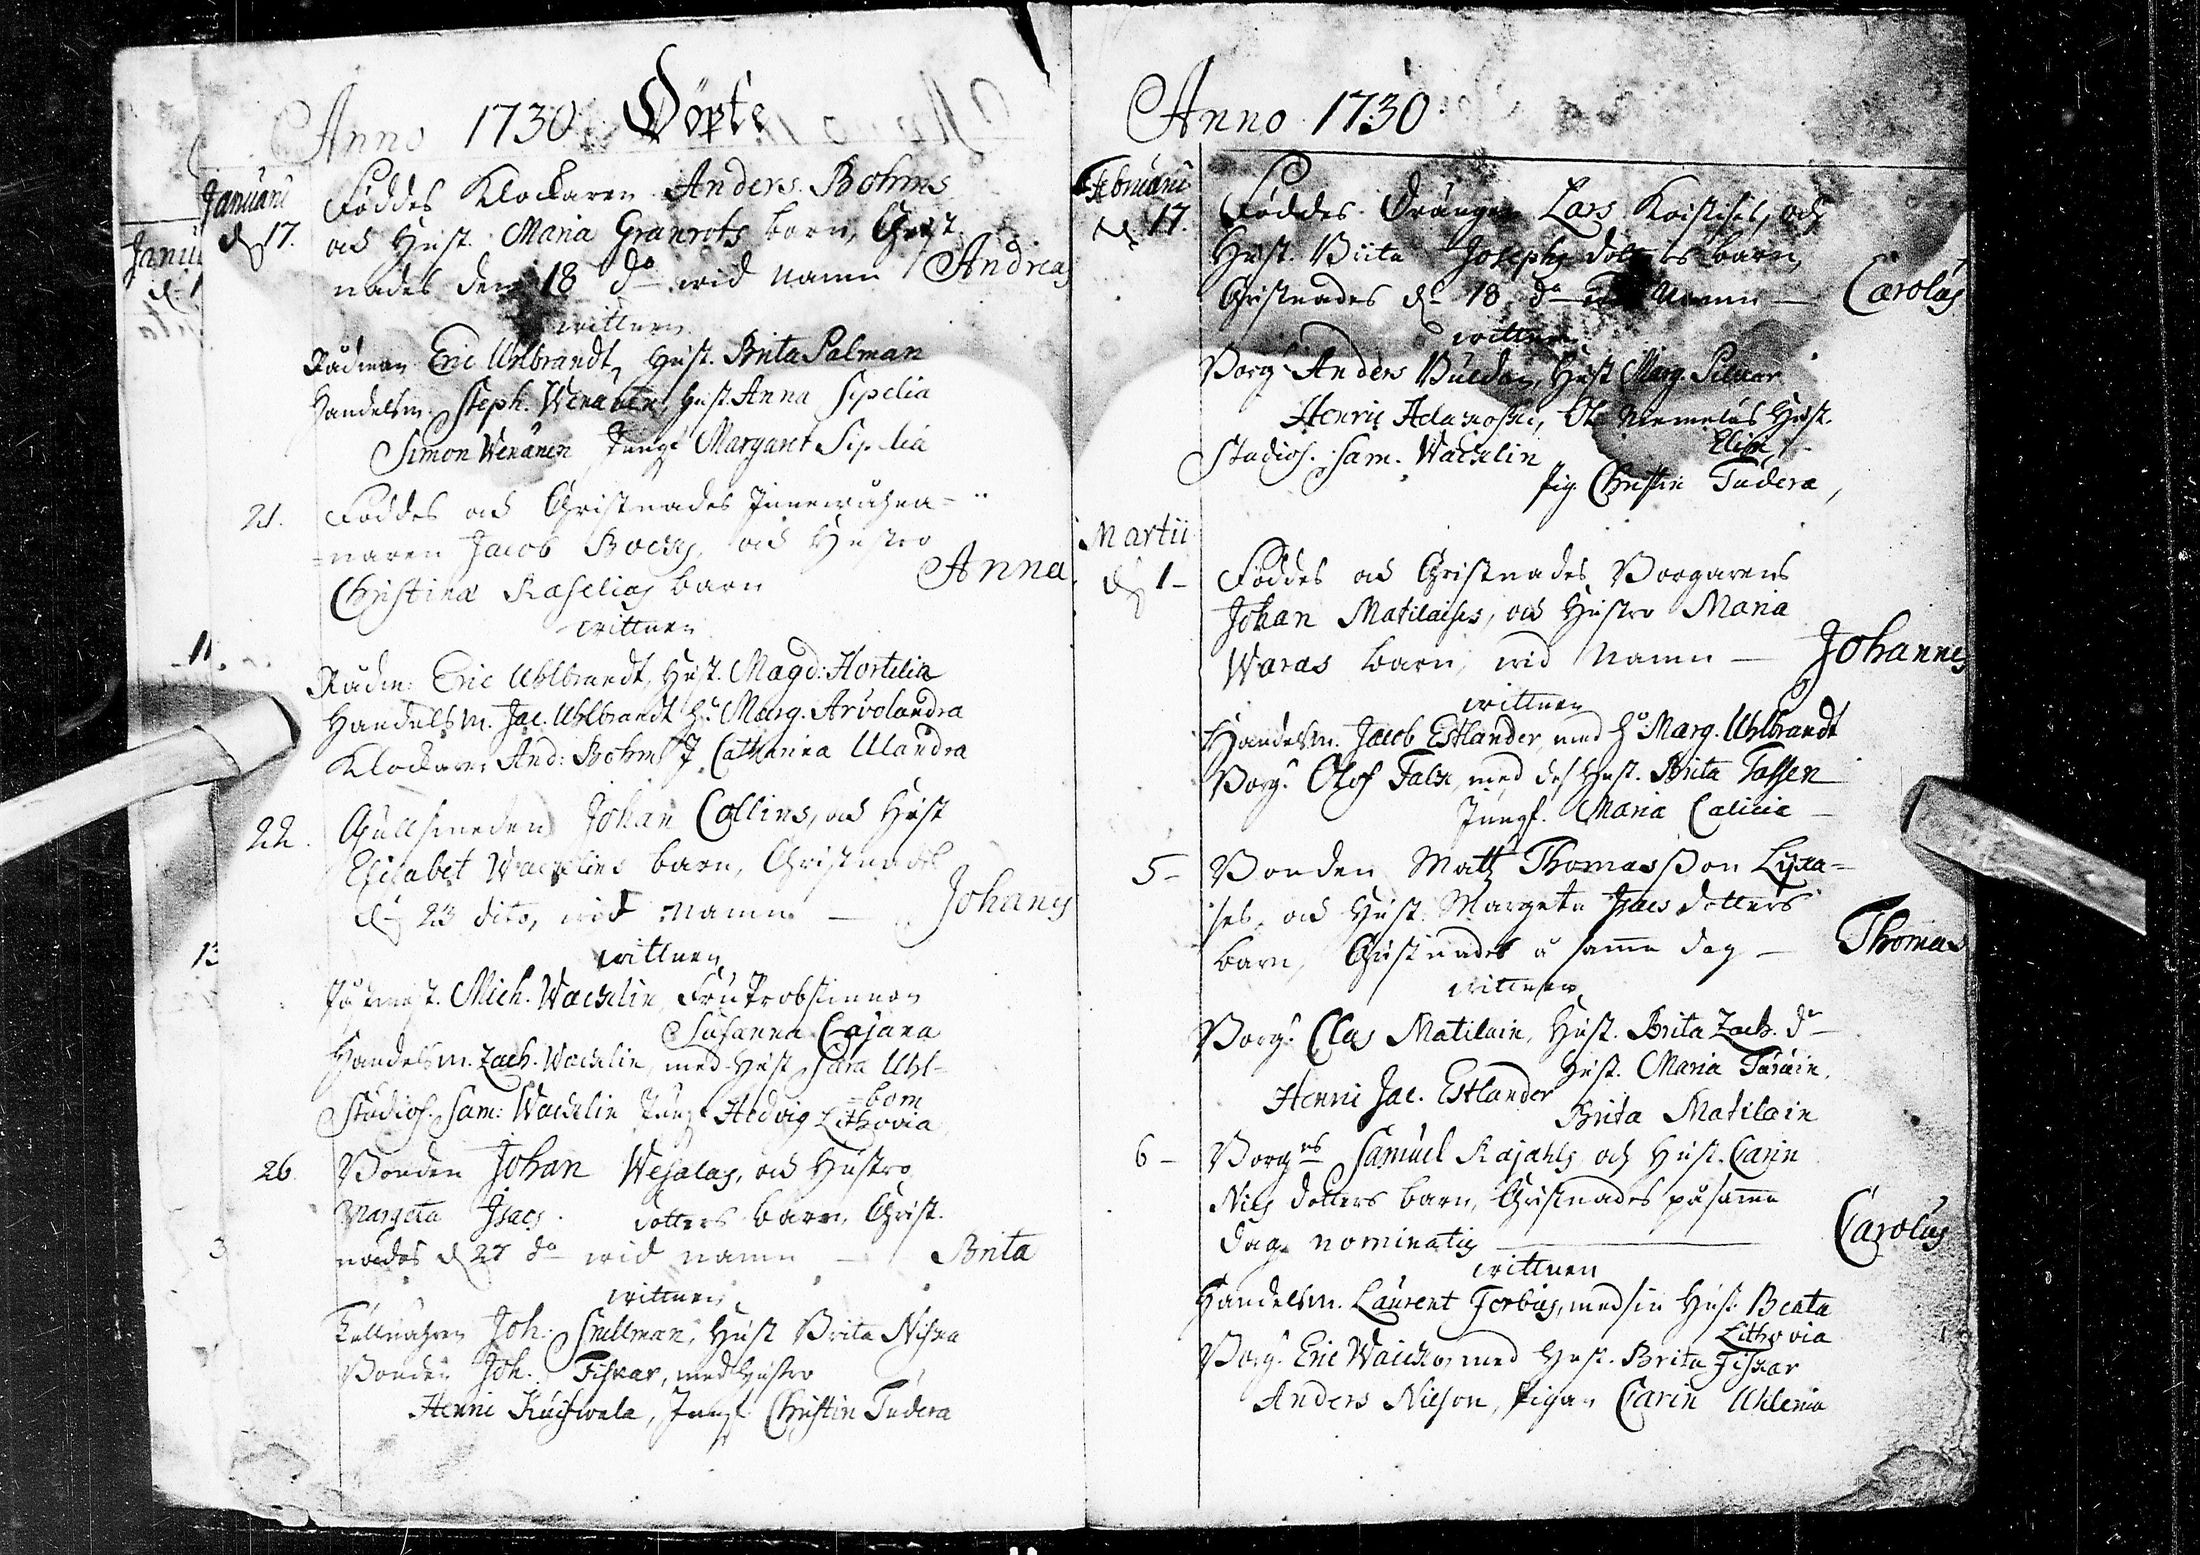 Anno 1730 Döpte
Januarii Föddes Klockaren Anders Bohms
d 17. och Hust. Maria Granrots barn, Christ-
nades den 18 do wid namn Andreas
wittnen
Rådman Eric Uhlbrandt, Hust. Brita Salman
Handelsm. Steph. Wenänen, Hust. Anna Sipelia
Simon Wenänen Jungf Margaret Sipelia
21. Föddes och Christnades
naren Jacob och Hustro
Christina Kaselias barn Anna
wittnen
Rådm: Eric Uhlbrandt, Hust. Magd: Hortelia
Handelsm. Jac. Uhlbrandt H. Marg. Arvolandra
Klockaren And: Bohm J. Catharina Ulandra
22. Gullsmeden Johan Collins, och Hust
Elisabet Wacklins barn, Christnades
d 23 dito, wid namn Johannes
wittnen
Mich. Wacklin, Fru Probstinnan
Susanna Cajana
Handelsm. Zach. Wacklin, med Hust Sara Uhl-
bom
Studios. Sam: Wacklin Jungf Hedvig Lithovia
26. Bonden Johan Wesalas, och Hustro
Margeta Isacs dotters barn, Christ-
nades d 27 do wid namn Brita
wittnen
Joh. Snellman, Hust Brita Niska
Bonden Joh. Fiskar, med Hustro
Henric Jungf. Christin Tudera
Anno 1730
Februarii Föddes Drängen Lars och
d 17. Hust. Brita Josephs dotters barn,
Christnades d 18 do wid Namn Carolus
wittnen
Borg. Anders Hust Marg.
Henric Hust.
Elisa
Studios. Sam. Wacklin
Pig. Christin Tudera,
Martii
d 1 Föddes och Christnades Borgarens
Johan Matilaises, och Hustro Maria
Waras barn, wid Namn Johannes
wittnen
Handelsm. Jacob Estlander, med H. Marg. Uhlbrandt
Borg. Olof Falk, med des Hust. Brita
Jungf. Maria Calicia
5 Bonden Matts Thomasson
och Hust. Margeta Isacs dotters
barn, Christnades å samma dag Thomas
wittnen
Borg. Clas Matilain, Hust. Brita Zach. dr
Hust. Maria
Henric Jac. Estlander
Brita Matilain
6 Borgns Samuel Kajahls och Hust. Carin
Nils dotters barn, Christnades på samma
dag nominatus Carolus
wittnen
Handelsm. Laurent Forbus, med sin Hust. Beata
Lithovia
Borg. Eric med Hust. Brita Fiskar
Anders Nilson, Pigan Carin Uhlenia